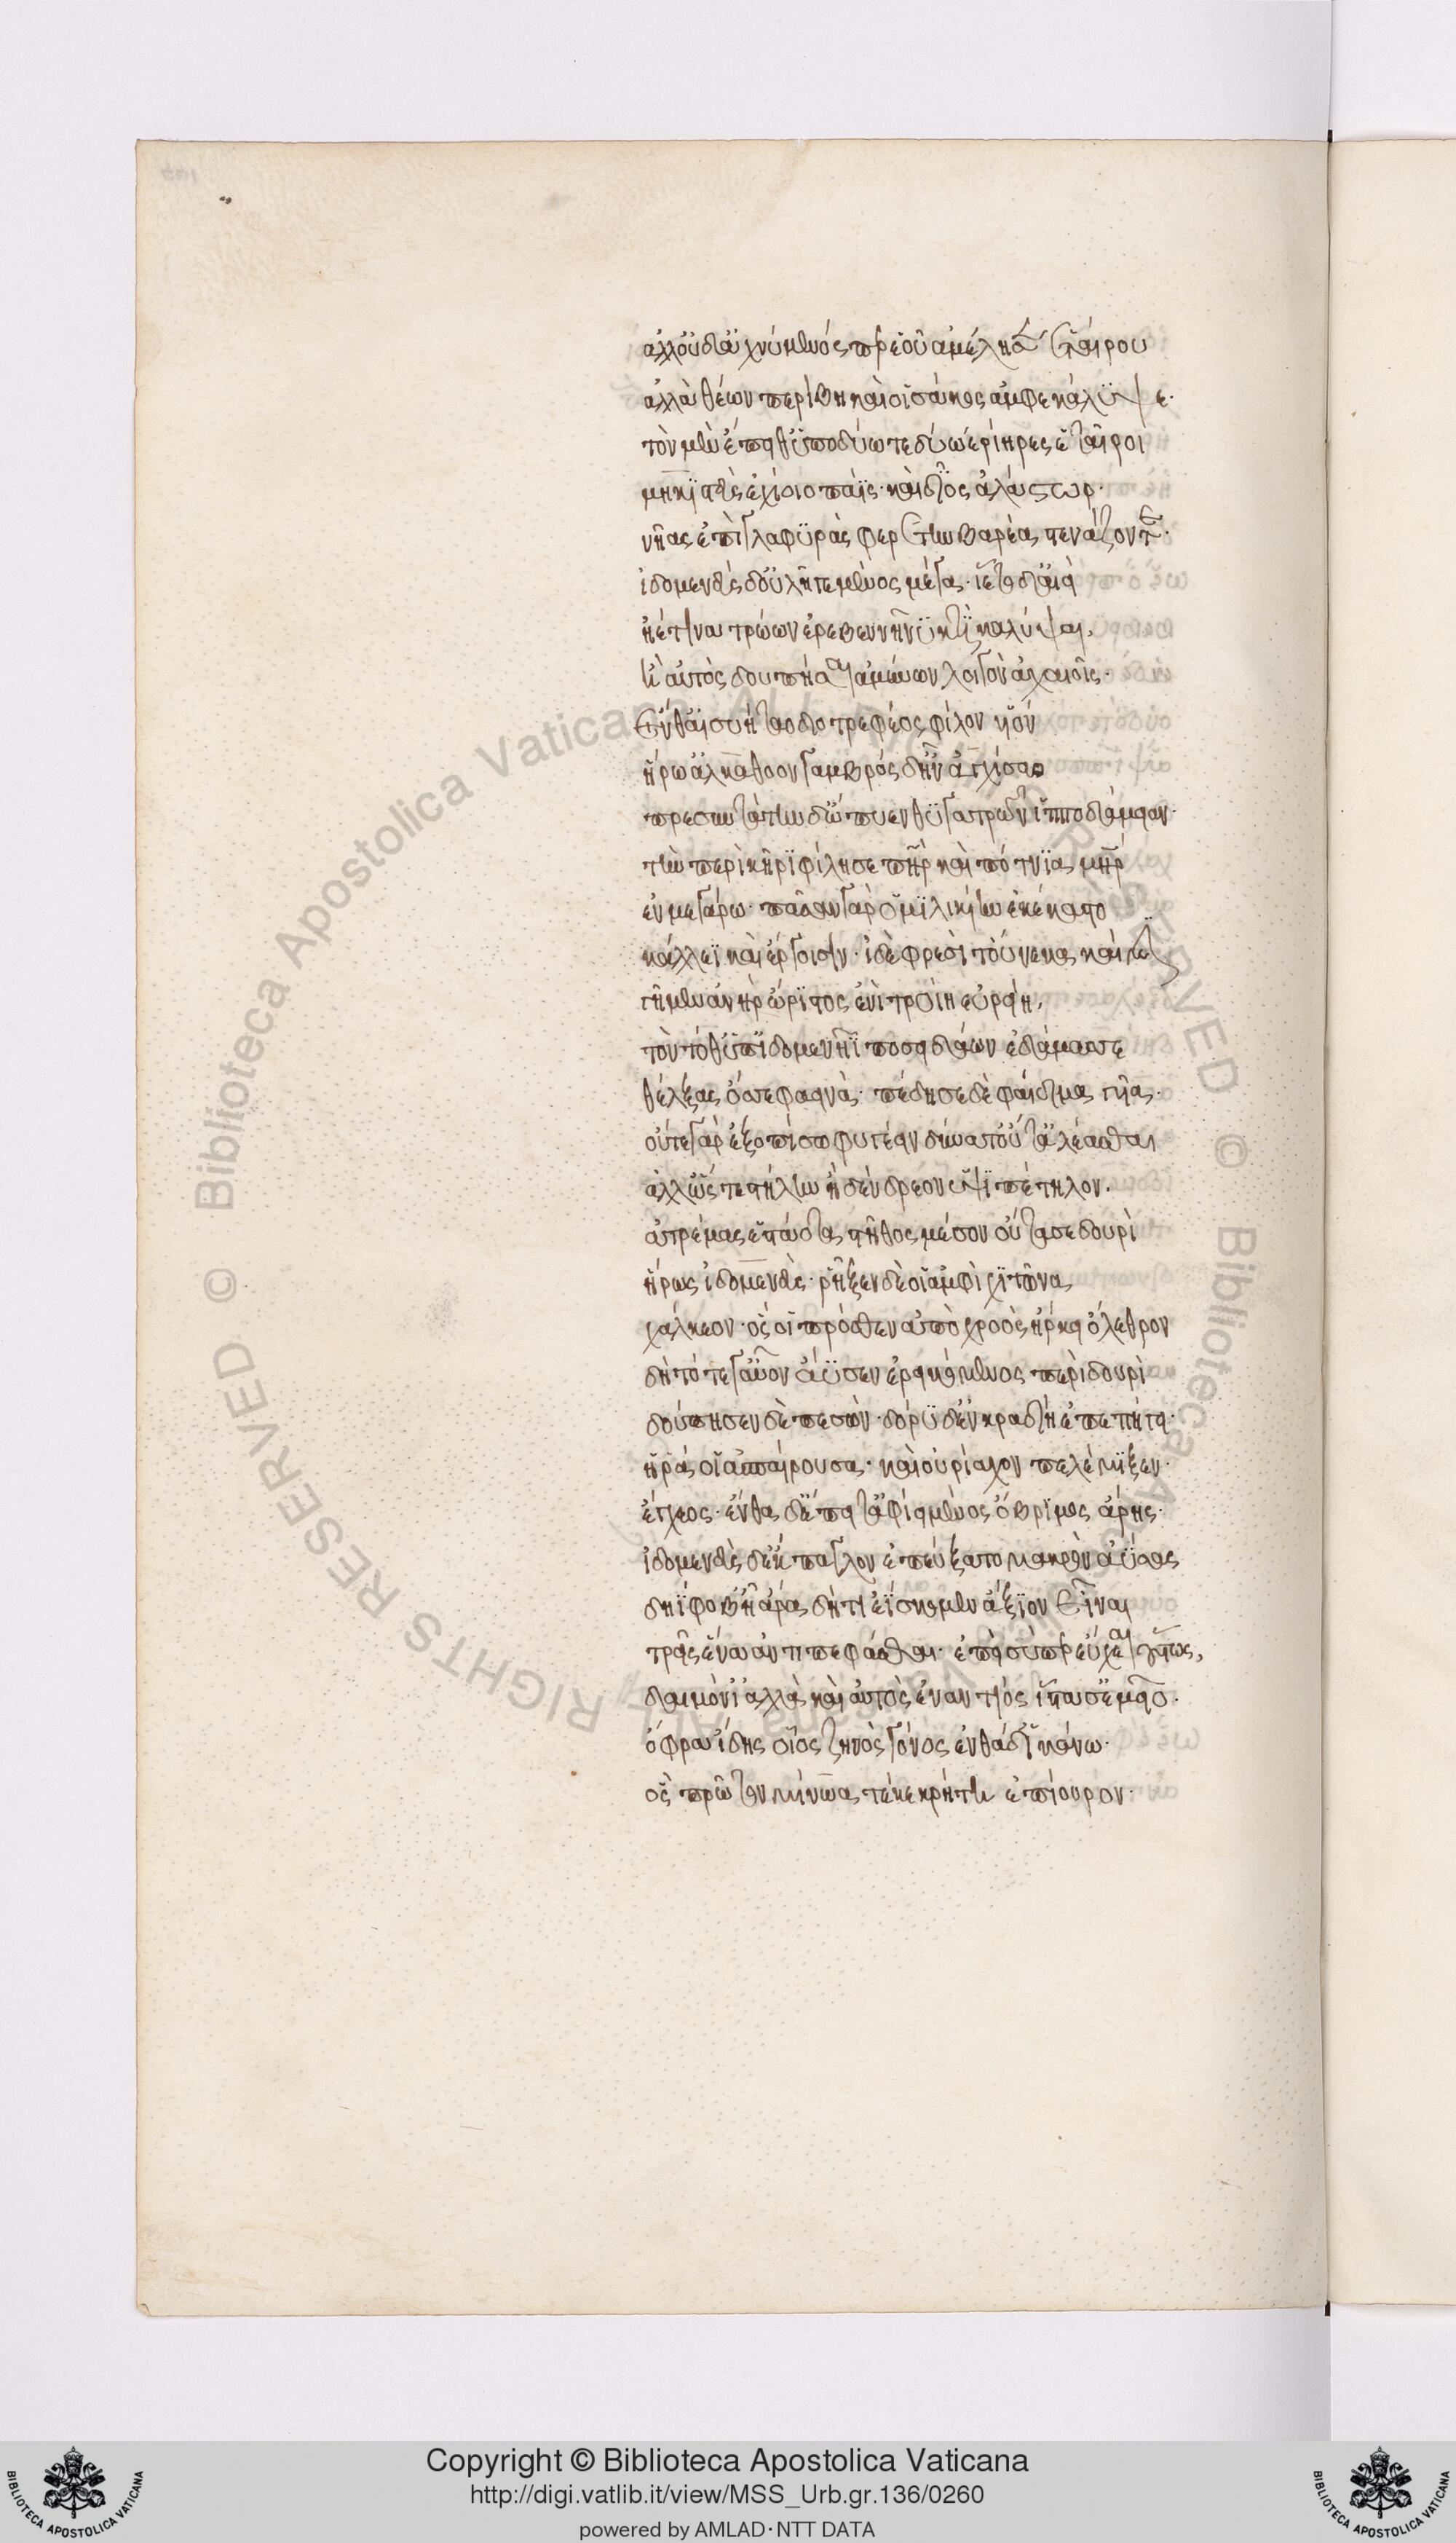 ἀλλ' οὐδ' ἀχνύμενός περ ἑοῦ ἀμέλησεν ἑταίρου
ἀλλὰ θέων περίβη καί οἱ σάκος ἀμφεκάλυψε·
τὸν μὲν ἔπειθ' ὑποδύωτε δύω ἐρίηρες ἑταῖροι
μηκιστεὺς ἐχίοιο παῖς· καὶ δῖος ἀλάστωρ·
νῆας ἐπὶ γλαφυρὰς φερέτην βαρέα στενάζοντε·
ἰδομενεὺς δ' οὐ λῆγε μένος μέγα· ἵετο δ' αἰεὶ
ἠέ τινα τρώων ἐρεβεννῆ νυκτὶ καλύψαι,
ἢ αὐτὸς δουπῆσαι ἀμύνων λοιγὸν ἀχαιοῖς·
ἔνθ' αἰσυήταο διοτρεφέος φίλον υἱόν
ἥρω' ἀλκάθοον γαμβρός δ' ἦν ἀγχίσαο
πρεσβυτάτην δ' ὤπυιε θυγατρῶν ἱπποδάμειαν·
τὴν περὶ κῆρι φίλησε πατὴρ καὶ πότνια μήτηρ
ἐν μεγάρω· πᾶσαν γὰρ ὁμηλικίην ἐκέκαστο
κάλλεϊ καὶ ἔργοισιν· ἰδὲ φρεσὶ τούνεκα καί μιν
γῆμεν ἀνὴρ ὤριστος ἐνὶ τροίη εὐρείη,
τὸν τόθ' ὑπ' ἰδομενῆϊ ποσειδάων ἐδάμασσε
θέλξας ὄσσε φαεινά· πέδησε δὲ φαίδιμα γυῖα·
οὔτε γὰρ ἐξοπίσω φυγέειν δύνατ' οὔτ' ἀλέασθαι
ἀλλ' ὥς τε στήλην ἢ δένδρεον ὑψιπέτηλον·
ἀτρέμας ἑσταότα στῆθος μέσον οὔτασε δουρὶ
ἥρως ἰδομενεὺς· ῥῆξεν δέ οἱ ἀμφὶ χιτῶνα
χάλκεον· ὅς οἱ πρόσθεν ἀπὸ χροὸς ἤρκει ὄλεθρον
δὴ τότε γ' αὖον ἄϋσεν ἐρεικόμενος περὶ δουρὶ
δούπησεν δὲ πεσών· δόρυ δ' ἐν κραδίη ἐπεπήγει·
ἥ ῥά οἱ ἀσπαίρουσα· καὶ οὐρίαχον πελέμιξεν·
ἔγχεος· ἔνθα δ' ἔπειτ' ἀφίει μένος ὄβριμος ἄρης·
ἰδομενεὺς δ' ἔκπαγλον ἐπεύξατο μακρὸν ἀΰσας
δηΐφοβ' ἦ ἄρα δή τι ἐΐσκομεν ἄξιον εἶναι
τρεῖς ἑνὸς ἀντὶ πεφάσθαι· ἐπεὶ σύ περ εὔχεαι οὕτως,
δαιμόνι' ἀλλὰ καὶ αὐτὸς ἐναντίος ἵστασ' ἐμεῖο·
ὄφρα ἴδης οἷος ζηνὸς γόνος ἐνθάδ' ἱκάνω·
ὃς πρῶτον μίνωα τέκε κρήτη ἐπίουρον·
Copyright © Biblioteca Apostolica Vaticana
http://digi.vatlib.it/view/MSS_Urb.gr.136/0260
powered by AMLAD·NTT DATA